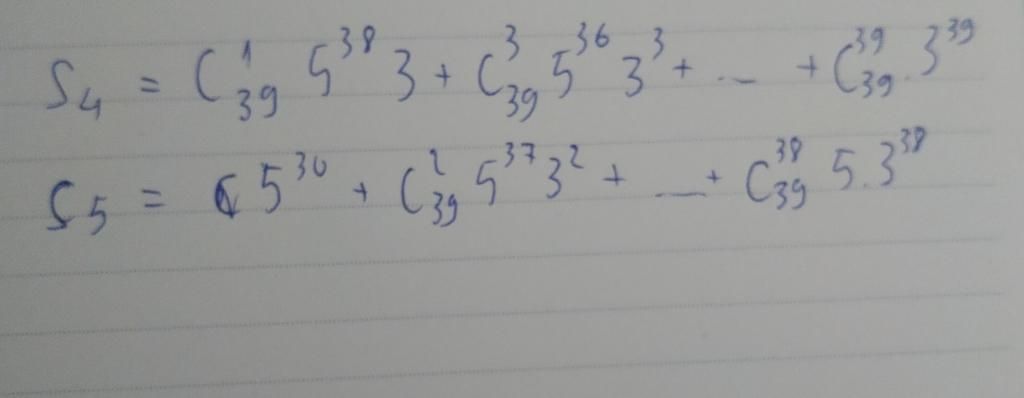 S₄ = C¹₃₉ 5³⁸ 3 + C³₃₉ 5³⁶ 3³ + ... + C³⁹₃₉ . 3³⁹
S₅ = 5³⁰ + C²₃₉ 5³⁷ 3² + ... + C³⁸₃₉ 5 . 3³⁸